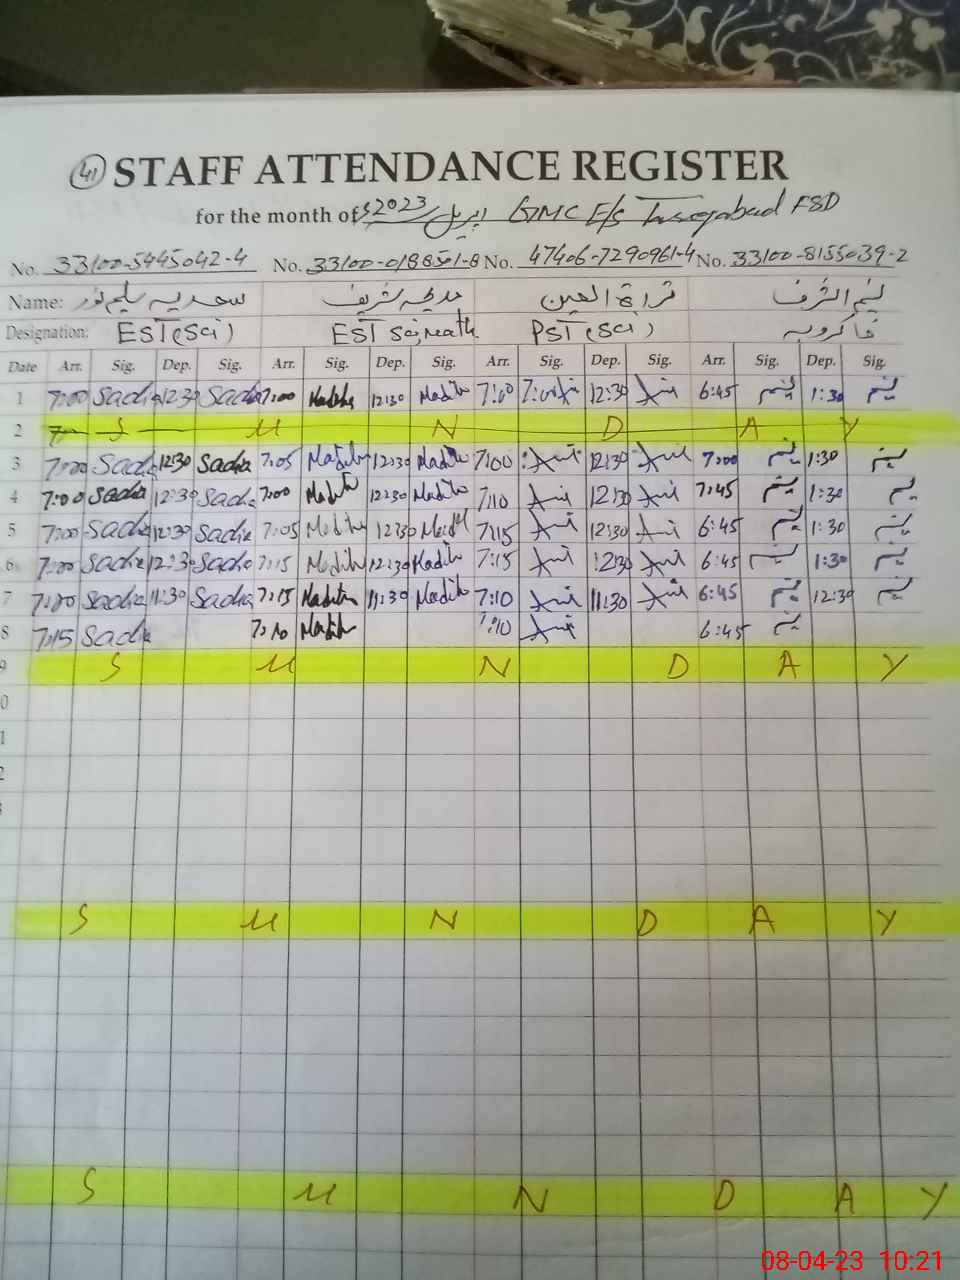 41 STAFF ATTENDANCE REGISTER
for the month of 2023 اپریل GMC E/S FSD
No. 33100-5445042-4 No. 33100-0188501-8 No. 47406-7290961-4 No. 33100-8155039-2
Name: سعدیہ سلیم نور مدیحہ شریف قراۃ العین
Designation: EST (Sci) EST Sci, math PST (Sci) خاکروبہ
Date Arr. Sig. Dep. Sig. Arr. Sig. Dep. Sig. Arr. Sig. Dep. Sig. Arr. Sig. Dep. Sig.
1 7:00 Sadia 12:30 Sadia 7:00 Madiha 12:30 Madiha 7:00 12:30 6:45 1:30
2 S U N D A Y
3 7:00 Sadia 12:30 Sadia 7:05 Madiha 12:30 Madiha 7:00 12:30 7:00 1:30
4 7:00 Sadia 12:30 Sadia 7:00 Madiha 12:30 Madiha 7:10 12:30 7:45 1:30
5 7:00 Sadia 12:30 Sadia 7:05 Madiha 12:30 7:15 12:30 6:45 1:30
6 7:00 Sadia 12:30 Sadia 7:15 Madiha 12:30 Madiha 7:15 12:30 6:45 1:30
7 7:00 Sadia 11:30 Sadia 7:15 Madiha 11:30 Madiha 7:10 11:30 6:45 12:30
8 7:15 Sadia 7:10 Madiha 7:10 6:45
9 S U N D A Y
0
1
2
S U N D A Y
S U N D A Y
08-04-23 10:21